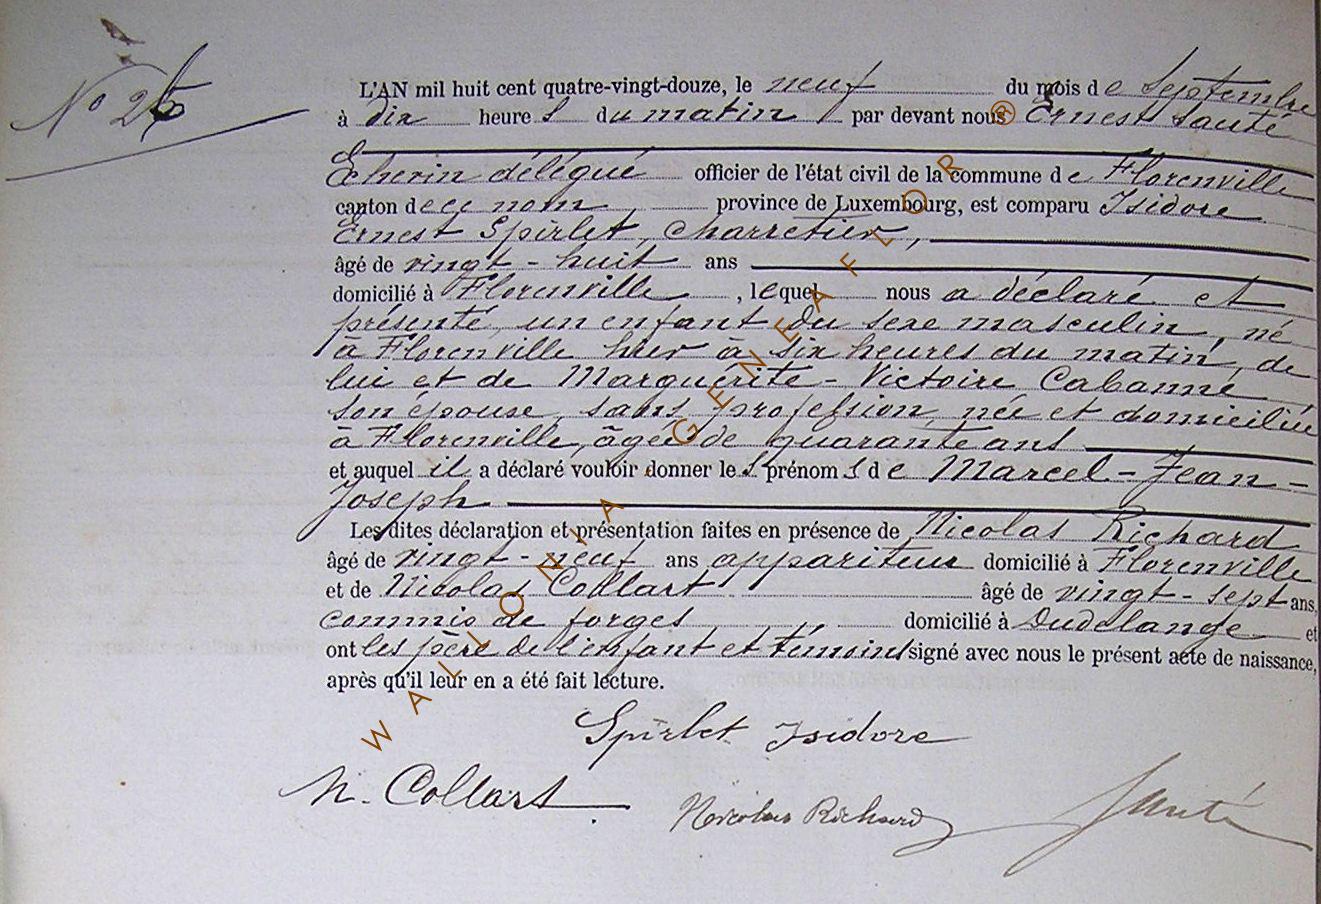 N° 26
L'AN mil huit cent quatre-vingt-douze, le neuf du mois de Septembre
à dix heures du matin par devant nous Ernest Sauté
Echevin délégué officier de l'état civil de la commune de Florenville
canton de ce nom province de Luxembourg, est comparu Isidore
Ernest Spirlet, charretier,
âgé de vingt-huit ans
domicilié à Florenville, lequel nous a déclaré et
présenté, un enfant du sexe masculin, né
à Florenville hier à six heures du matin, de
lui et de Marguérite-Victoire Cabanne
son épouse, sans profession, née et domiciliée
à Florenville, âgée de quarante ans
et auquel il a déclaré vouloir donner les prénoms de Marcel-Jean-
Joseph
Lesdites déclaration et présentation faites en présence de Nicolas Richard
âgé de vingt-neuf ans appariteur domicilié à Florenville
et de Nicolas Collart âgé de vingt-sept ans,
commis de forges domicilié à Dudelange et
ont les père de l'enfant et témoins signé avec nous le présent acte de naissance,
après qu'il leur en a été fait lecture.
Spirlet Isidore
N. Collart
Nicolas Richard
Sauté
WALLONIA - GENEAFLOR ®